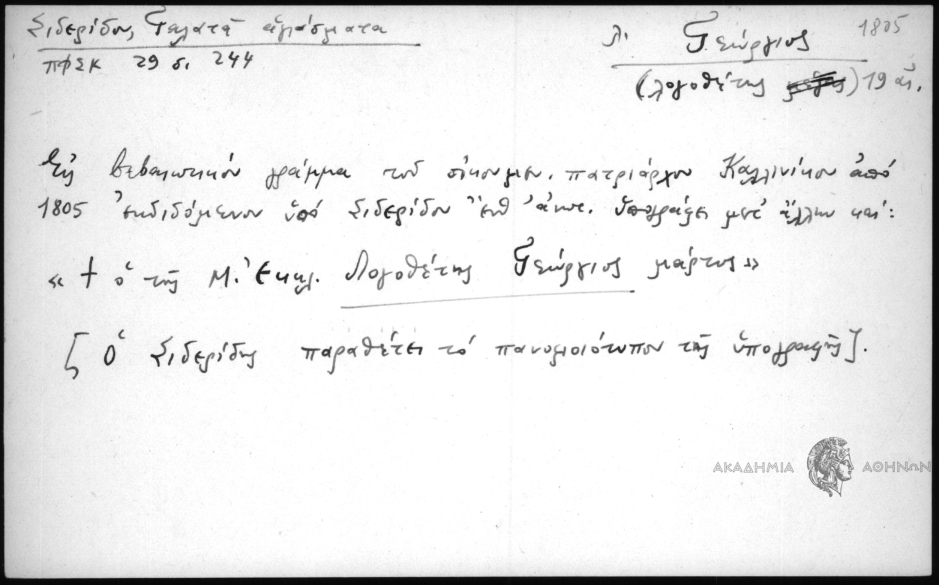 Σιδερίδου, Γαλατᾶ ἁγιάσματα
ΠΦΣΚ 29 σ. 244
λ. Γεώργιος 1805
(λογοθέτης) 19 αἰ.
Εἰς βεβαιωτικόν γράμμα τοῦ οἰκουμεν. πατριάρχου Καλλινίκου ἀπό
1805 ἐκδιδόμενον ὑπό Σιδερίδου ἔνθ' ἀνωτ. ὑπογράφει μετ' ἄλλων καί:
« + ὁ τῆς Μ. Ἐκκλ. Λογοθέτης Γεώργιος μάρτυς»
[Ὁ Σιδερίδης παραθέτει τό πανομοιότυπον τῆς ὑπογραφῆς].
ΑΚΑΔΗΜΙΑ ΑΘΗΝΩΝ